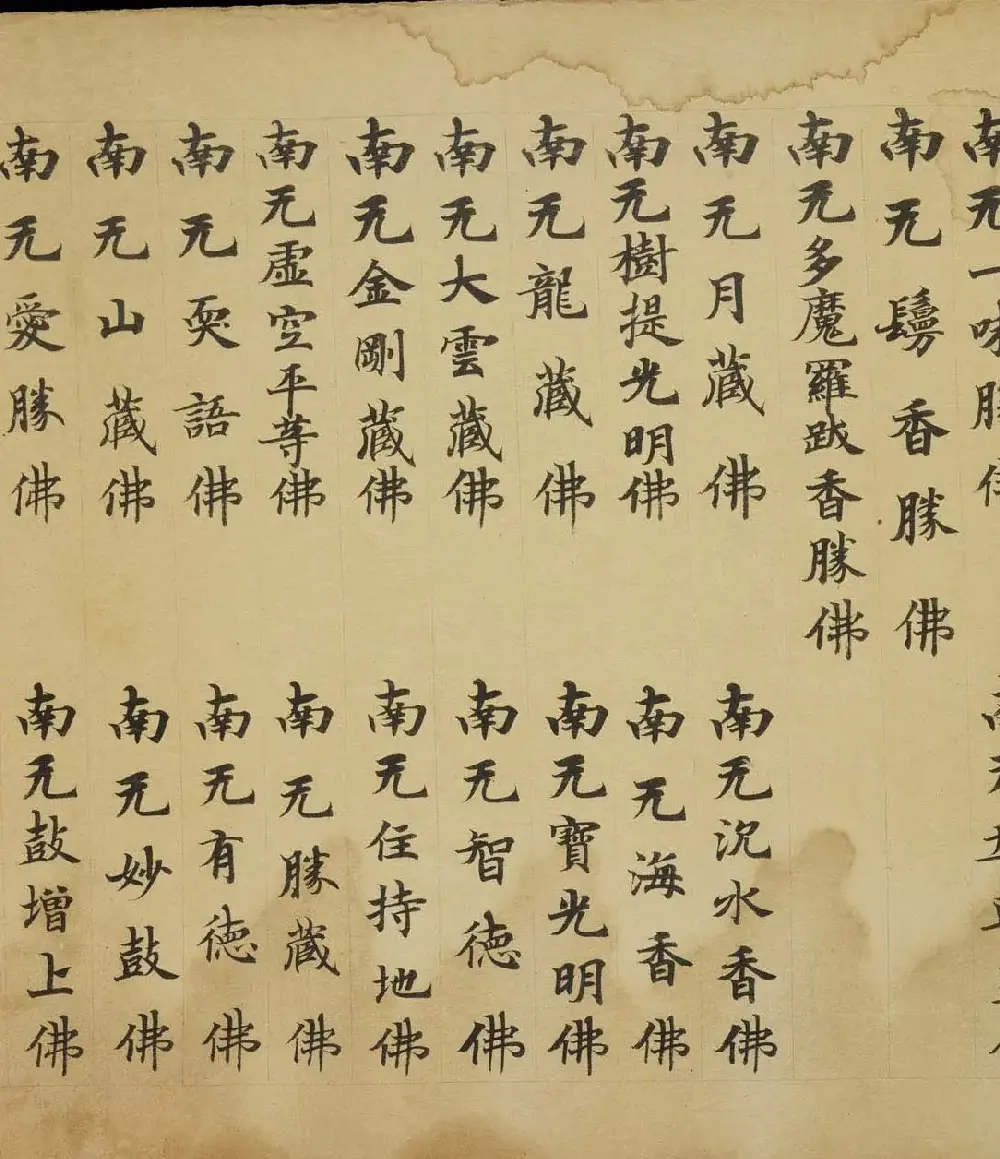 南无一味勝
南无鬘香勝佛
南无多魔羅跋香勝佛
南无月藏佛
南无沉水香佛
南无樹提光明佛
南无海香佛
南无龍藏佛
南无寶光明佛
南无大雲藏佛
南无智德佛
南无金剛藏佛
南无住持地佛
南无虛空平等佛
南无勝藏佛
南无耎語佛
南无有德佛
南无山藏佛
南无妙鼓佛
南无愛勝佛
南无鼓增上佛